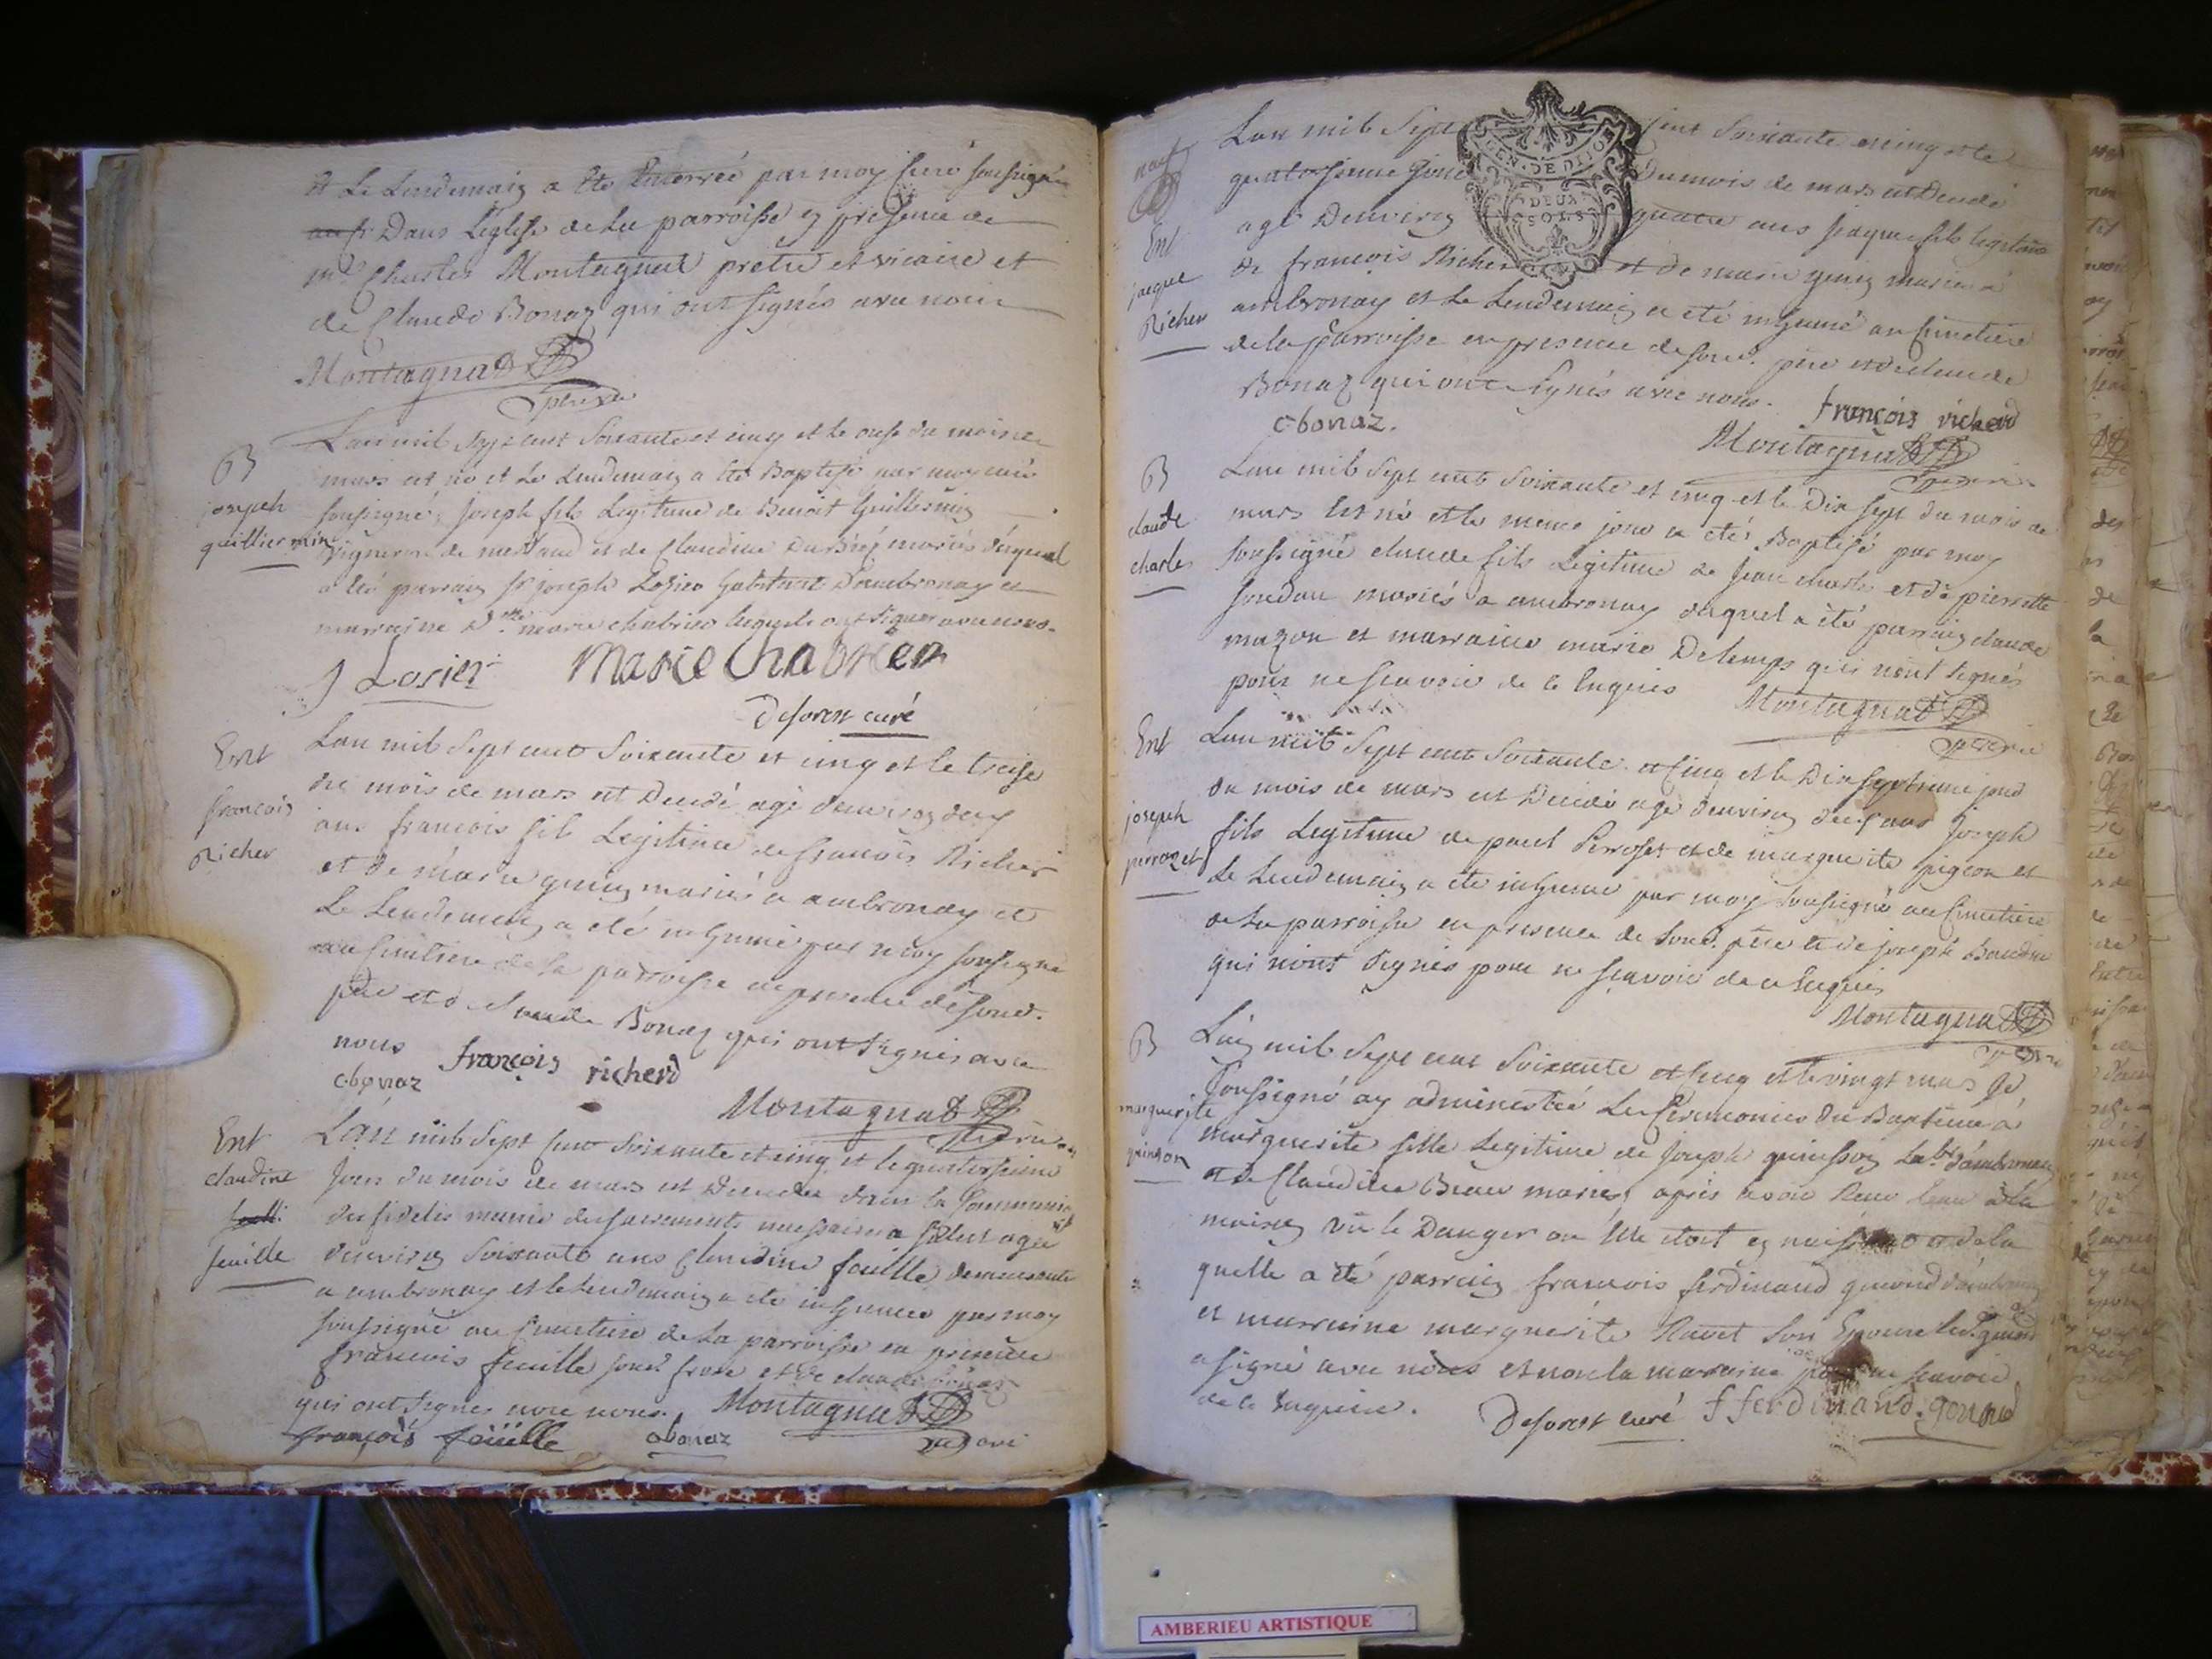 et Le Lendemain a ete Enterreé par moy Curé soussigné
Dans L'eglise de La parroisse en presence de
mre Charles Montagnat pretre et vicaire et
de Claude Bonaz qui ont signés avec nous
Montagnat
B
joseph
guilliermin
L'an mil sept cent soixante et cinq et le onze du mois de
mars est né et Le Lendemain a été Baptisé par moy curé
soussigné, joseph fils Legitime de Benoit Guillermin
vigneron de merland et de Claudine mariés duquel
a été parrain sr joseph Losier habitant d'ambronay et
marraine Dlle marie chabrier lesquels ont signés avec nous.
J Losier Marie Chabrier
Deforest curé
Ent
françois
Richer
Lan mil sept cent soixante et cinq et le treise
du mois de mars est Decedé agé denviron deux
ans francois fils Legitime de francois Richer
et de marie guin mariés a ambronay et
le Lendemain a été inhumé par moy soussigné
au cimetiere de la parroisse en presence de soud.
père et de Claude Bonaz qui ont signés avec
nous françois richerd
cbonaz
Montagnat
Ent
claudine
feuille
L'an mil sept cent soixante et cinq et le quatorsieme
jour du mois de mars est Decedée dans la Communion
des fideles munie des sacrements necessaires a salut agée
denviron soixante ans Claudine feuille demeurante
a ambronay et le lendemain a été inhumée par moy
soussigné au cimetiere de La parroisse en presence
francois feuille soud. frere et de claude bonaz
qui ont signes avec nous. Montagnat
françois feüille cbonaz
neuf
Ent
jacque
Richer
Lan mil sept cent soixante et cinq et le
GEN. DE DIJON
DEUX
SOLS
quatorsieme jour Du mois de mars est Decedé
agé Denviron quatre ans jacque fils legitime
de francois Richer et de marie guin mariés a
ambronay et le Lendemain a été inhumé au cimetiere
de la parroisse en presence de soud. père et de claude
Bonaz qui ont signés avec nous. françois richerd
cbonaz.
Montagnat
B
claude
charles
Lan mil sept cent soixante et cinq et le Dix sept du mois de
mars est né et le meme jour a été Baptisé par moy
soussigné claude fils Legitime de Jean charles et de pierrette
mariés a ambronay duquel a été parrain claude
mazon et marraine marie Delemps qui n'ont signés
pour ne scavoir de ce Enquis Montagnat
Ent
joseph
perrozet
Lan mil sept cent soixante et cinq et le Dix septieme jour
du mois de mars est Decedé agé denviron deux ans joseph
fils Legitime de paul Perroset et de marguerite pigeon et
Le Lendemain a été inhumé par moy soussigné au cimetiere
de La parroisse en presence de soud. père et de joseph
qui n'ont signés pour ne scavoir de ce Enquis
Montagnat
B
marguerite
quinson
L'an mil sept cent soixante et cinq et le vingt mars Je
soussigné ay administré Les Ceremonies du Baptême à
marguerite fille Legitime de joseph quinson Labr d'ambronay
et de Claudine Beau mariés, après avoir Recu leau a la
maison vü le Danger ou Elle étoit en naissant et de la
quelle a été parrain francois ferdinand gonod d'ambronay
et marraine marguerite Ravet son Epouse led. gonod
a signé avec nous et non la marraine pour ne scavoir
de ce Enquise.
Deforest curé f ferdinand. gonod
AMBERIEU ARTISTIQUE